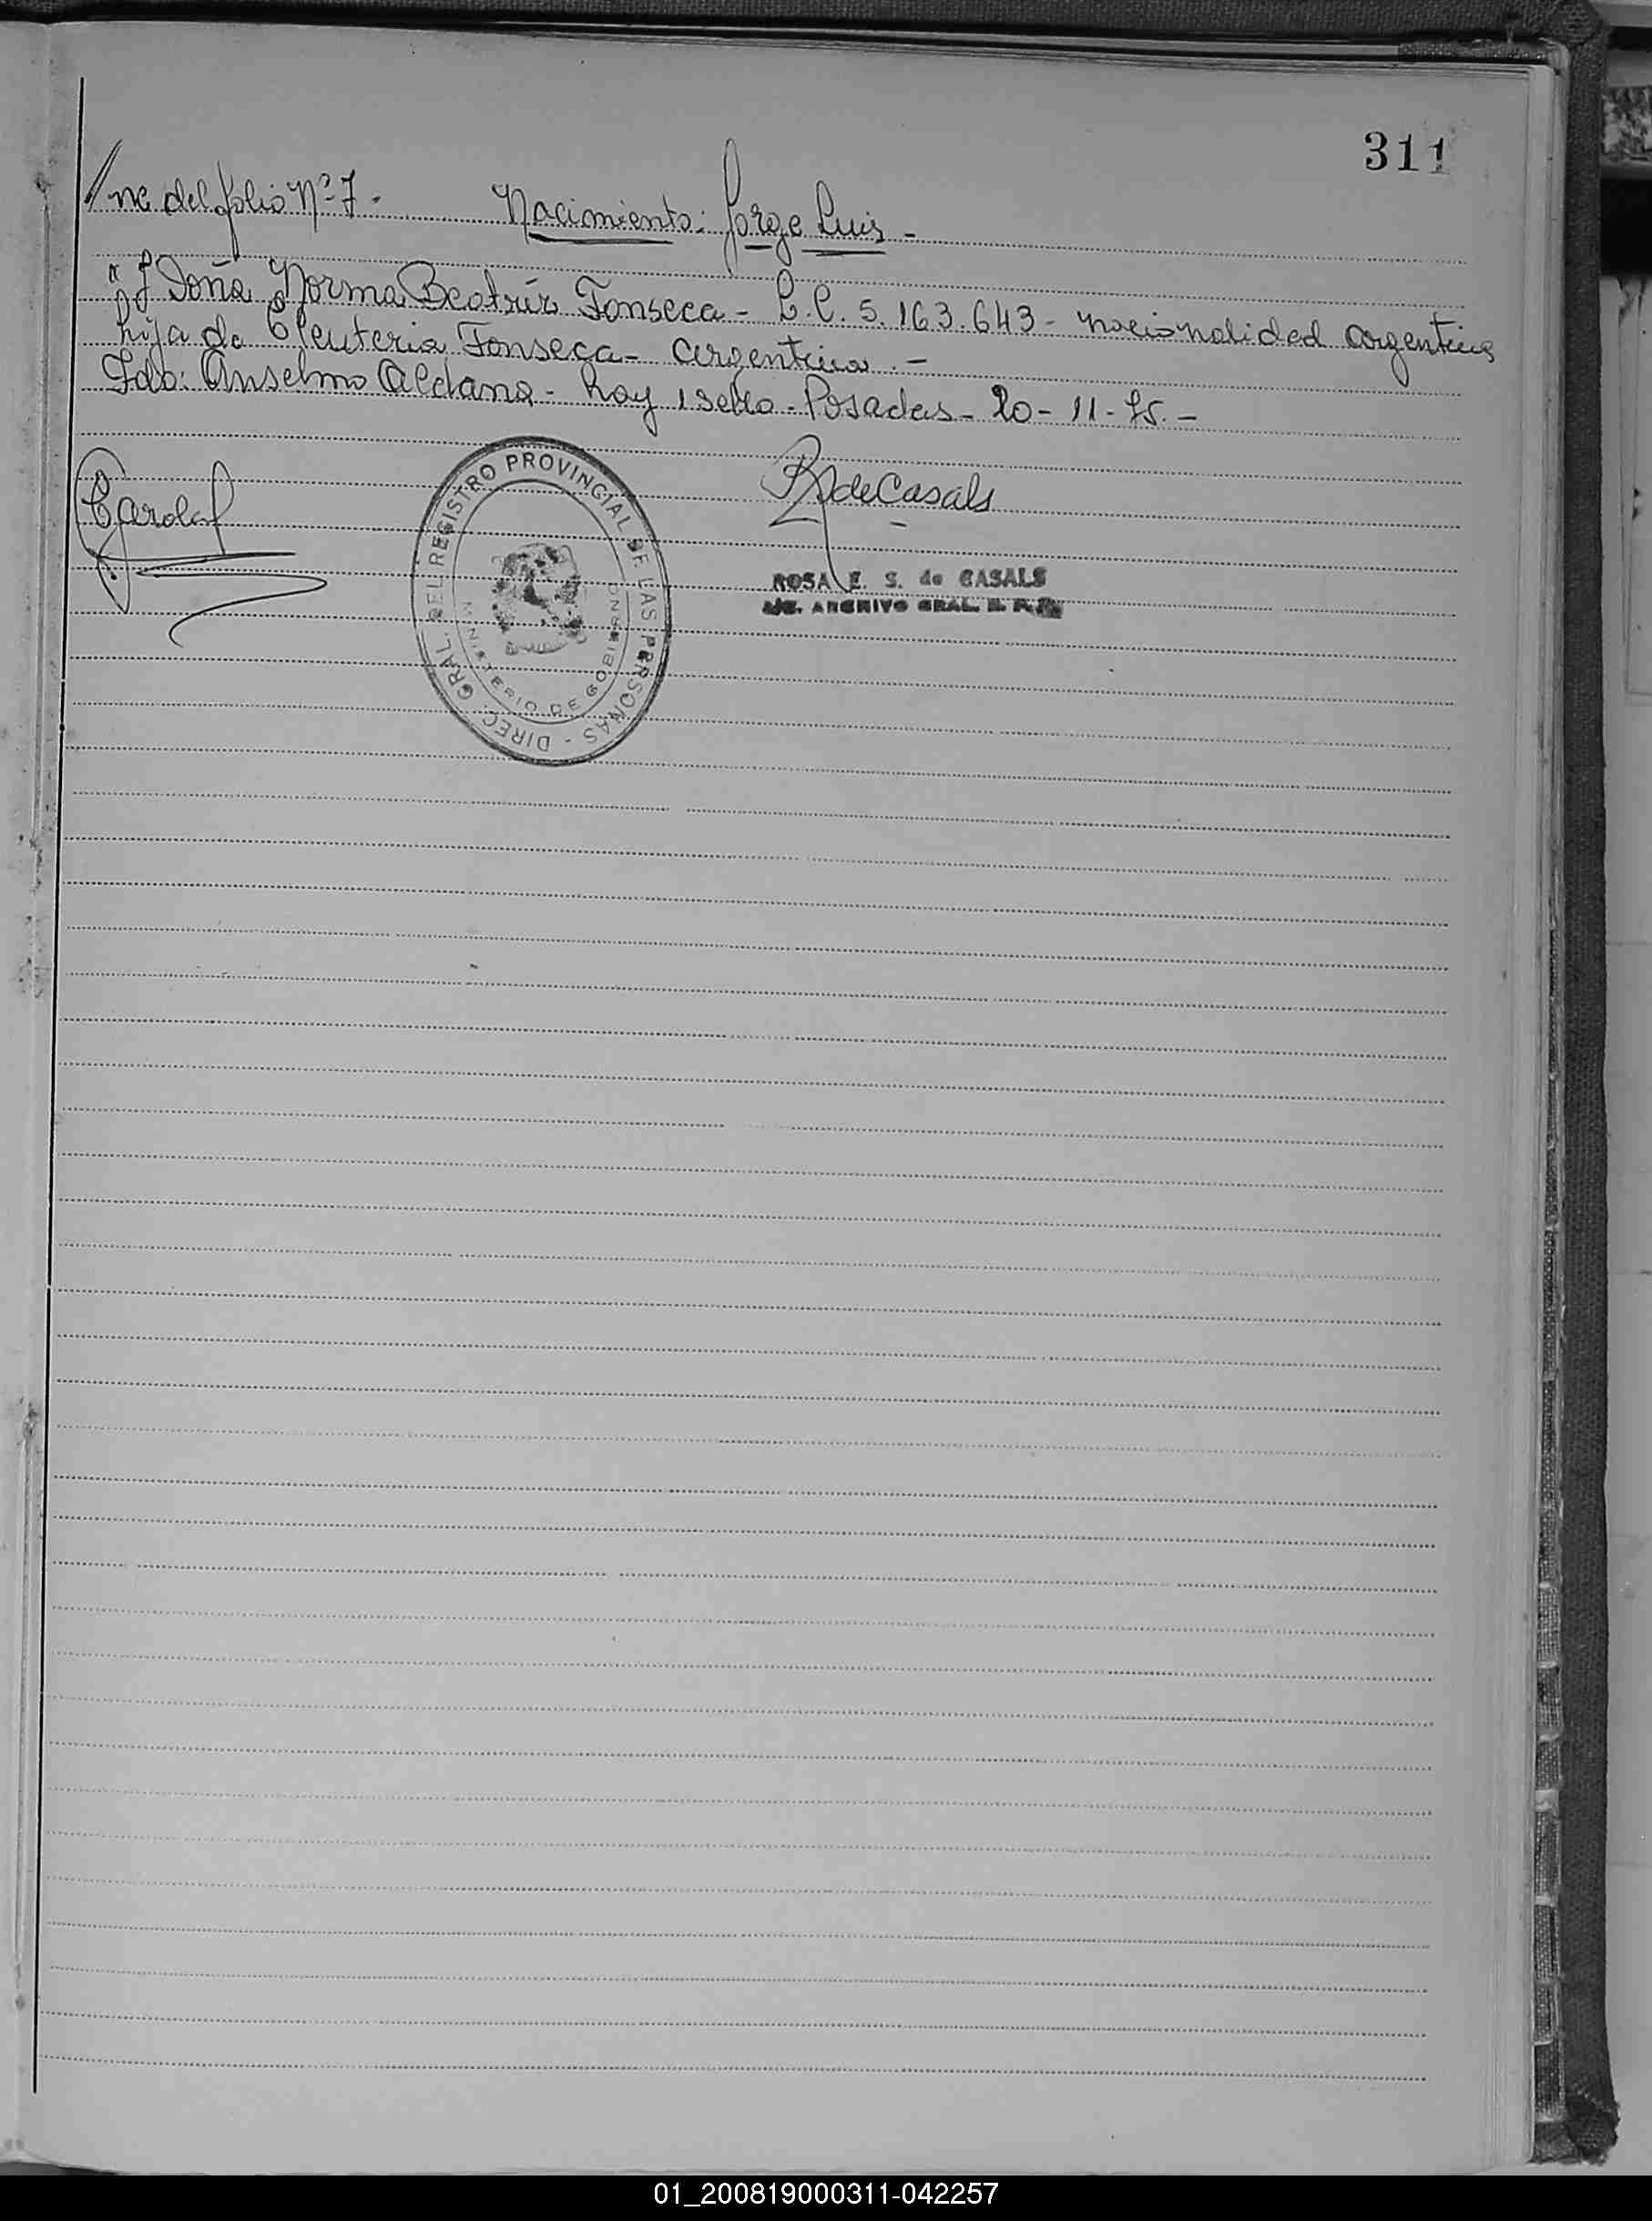 311
//ne del folio Nº 7.- Nacimiento: Jorge Luis -
Doña Norma Beatriz Fonseca - L.C. 5.163.643 - nacionalidad argentina
hija de Eleuteria Fonseca - argentina. -
Fdo: Anselmo Aldana - hay 1 sello - Posadas - 20-11-75. -
R de Casals
DIREC. GRAL. DEL REGISTRO PROVINCIAL DE LAS PERSONAS -
MINISTERIO DE GOBIERNO
ROSA E. S. de CASALS
ARCHIVO GRAL. R. P.
01_200819000311-042257